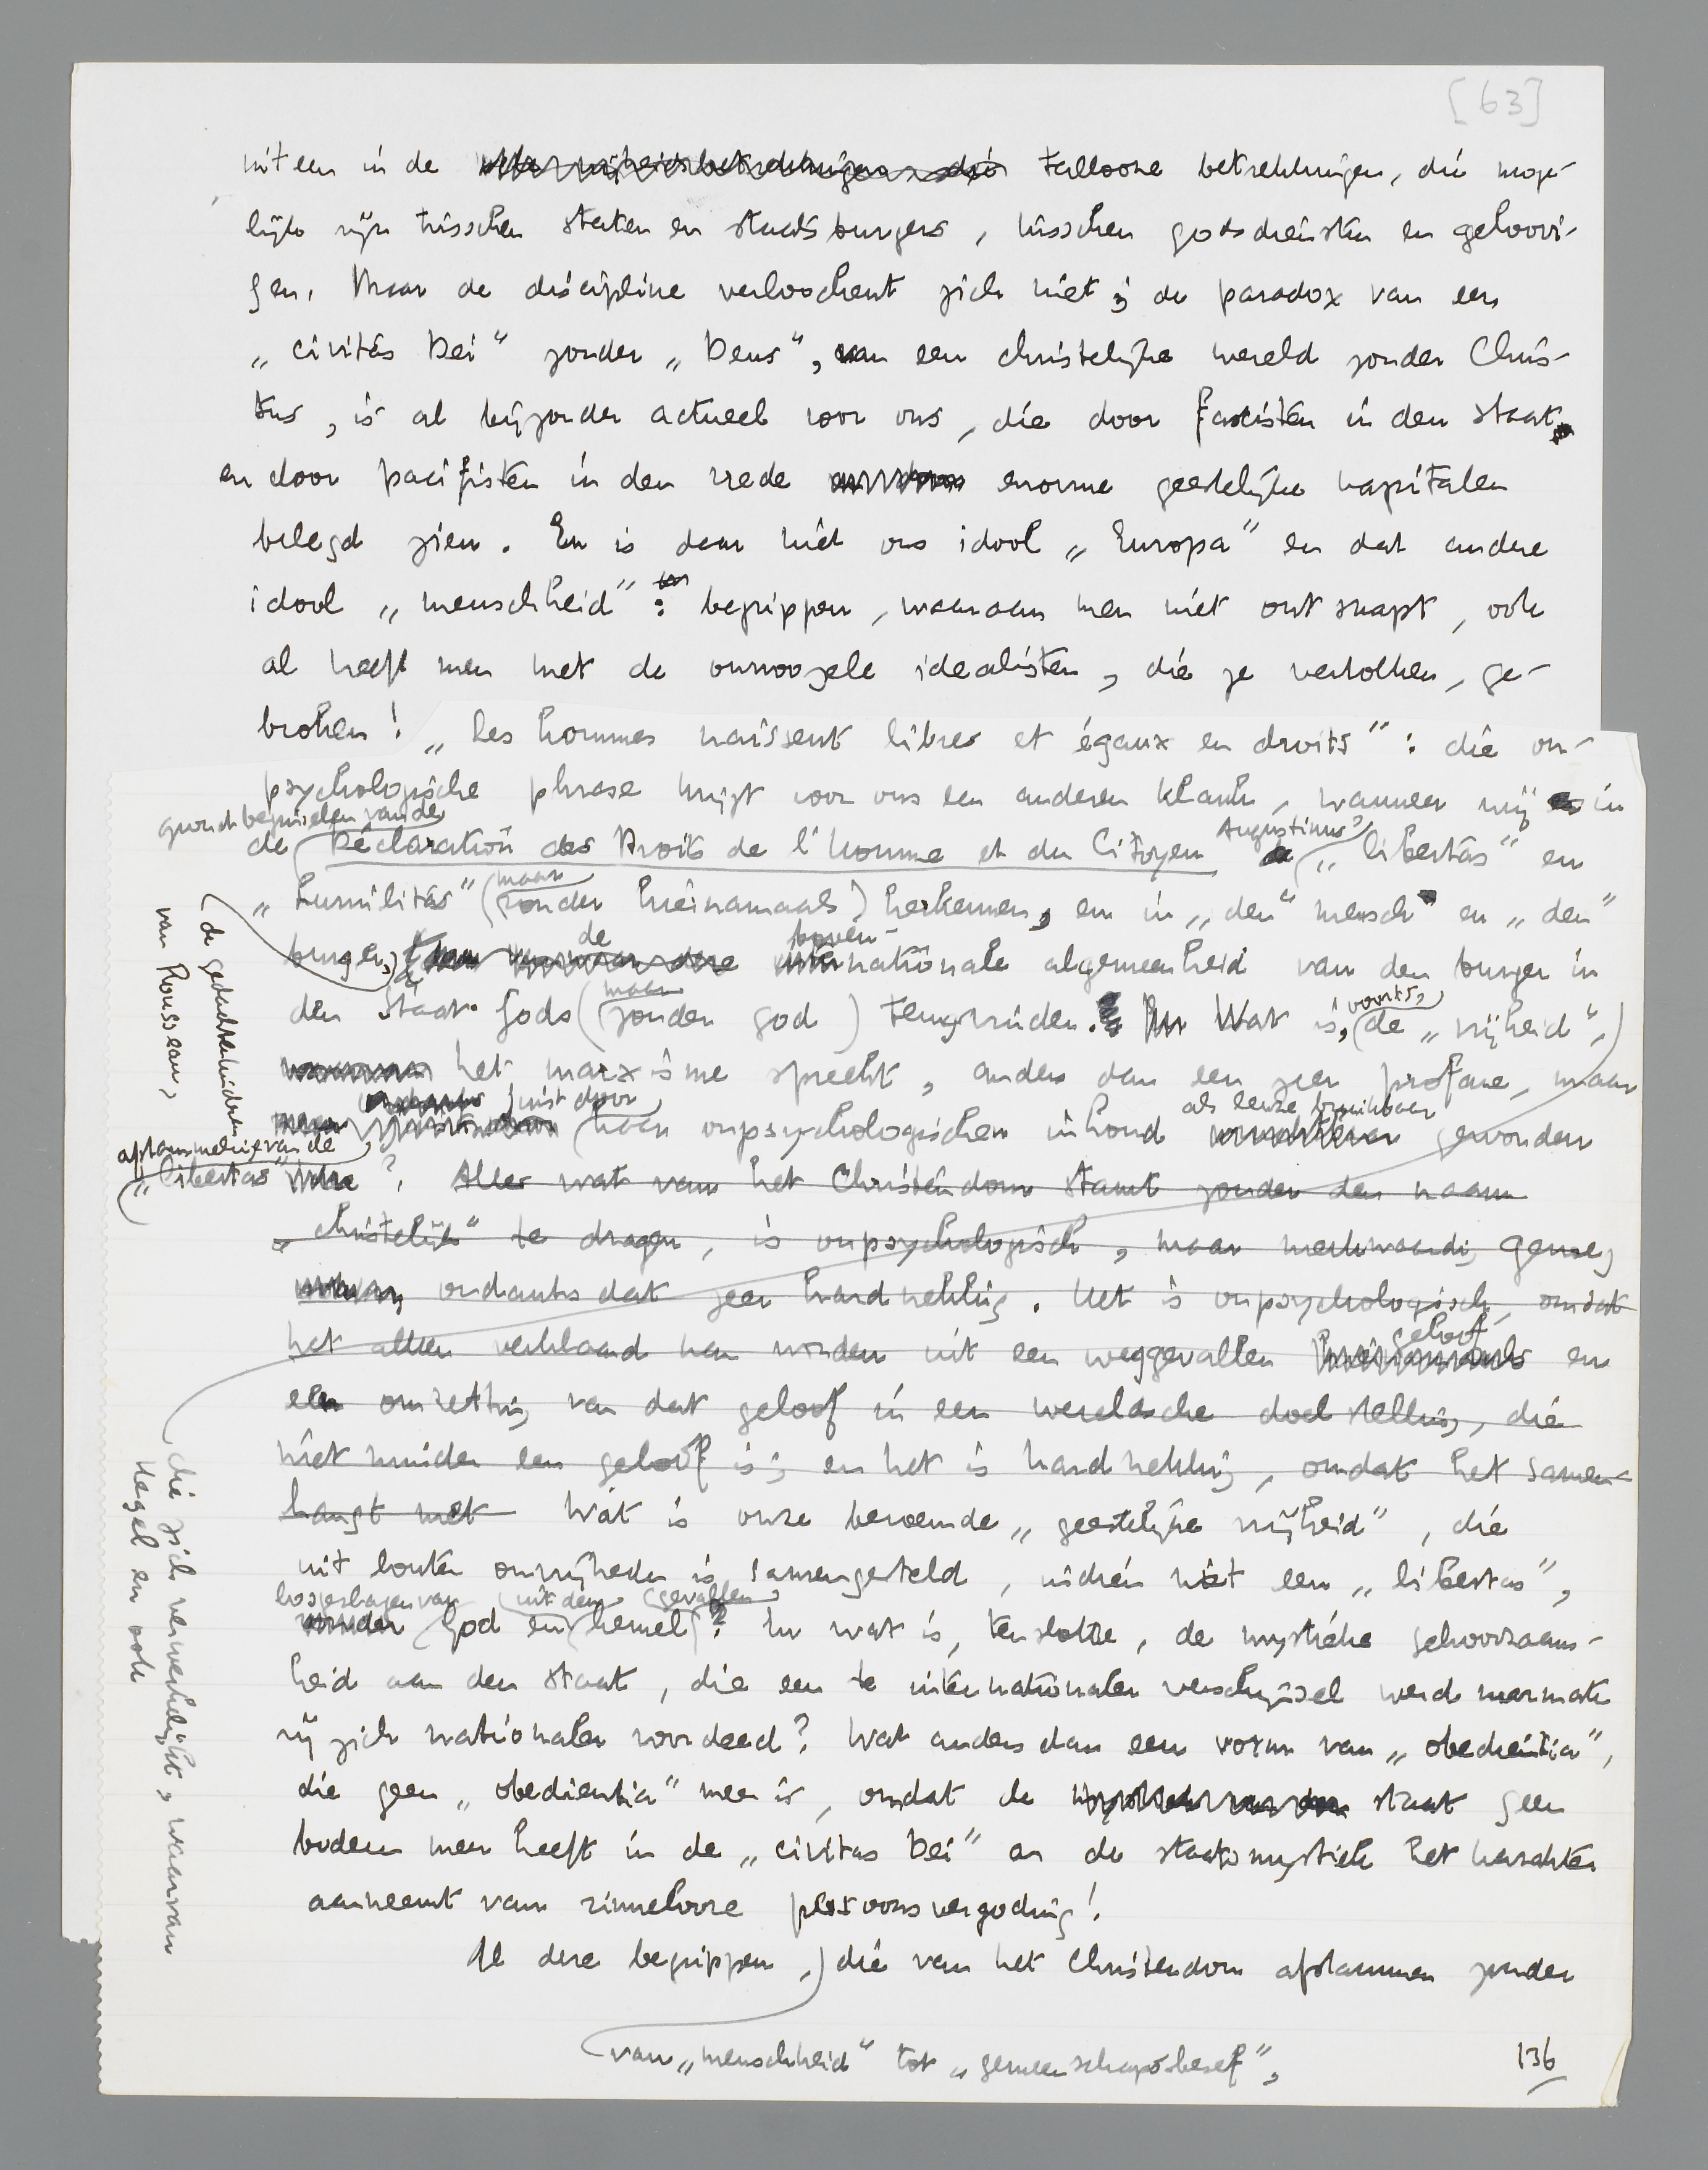 [63]
uiteen in de talloose betrekkingen, die moge-
lijk zijn tusschen staten en staatsburgers, tusschen godsdiensten en geloovi-
gen. Maar de discipline verloochent zich niet; de paradox van een
„civitas Dei" zonder „Deus", van een christelijke wereld zonder Chris-
tus, is al bijzonder actueel voor ons, die door fascisten in den staat
en door pacifisten in den vrede enorme geestelijke kapitalen
belegd zien. En is daar niet ons idool „Europa" en dat andere
idool „menschheid": begrippen, waaraan men niet ontsnapt, ook
al heeft men met de onnoozele idealisten, die ze vertolken, ge-
broken! „Les hommes naissent libres et égaux en droits": die on-
psychologische phrase krijgt voor ons een anderen klank, wanneer wij in
grondbeginselen van de
de Déclaration des Droits de l'homme et du Citoyen Augustinus' „libertas" en
„humilitas" (maar zonder hiernamaals) herkennen, en in „den" mensch en „den"
burger, de gedachtenkinderen
van Rousseau,
de boven-nationale algemeenheid van den burger in
den Staat Gods (maar zonder god) terugvinden. Wat is, voorts, de „vrijheid",
het marxisme spreekt, anders dan een zeer profane, maar
juist door haar onpsychologischen inhoud als leuze bruikbaar geworden
afstammeling van de
„libertas"? Alles wat van het Christendom stamt zonder den naam
„christelijk" te dragen, is onpsychologisch, maar merkwaardig genoeg
ondanks dat zeer hardnekkig. Het is onpsychologisch, omdat
het alleen verklaard kan worden uit een weggevallen geloof en
een omzetting van dat geloof in een wereldsche doelstelling, die
niet minder een geloof is; en het is hardnekkig, omdat het samen-
hangt met Wat is onze beroemde „geestelijke vrijheid", die
die zich verwerkelijkt, waarvan
Hegel en ook
uit louter onvrijheden is samengesteld, indien niet een „libertas",
losgeslagen van God en uit den hemel gevallen? En wat is, tenslotte, de mystieke gehoorzaam-
heid aan den staat, die een te internationaler verschijnsel werd naarmate
zij zich nationaler voordeed? Wat anders dan een vorm van „obedientia",
die geen „obedientia" meer is, omdat de staat geen
bodem meer heeft in de „civitas Dei" en de staatsmystiek het karakter
aanneemt van zinnelooze persoonsvergoding!
Al deze begrippen, die van het Christendom afstammen zonder
van „menschheid" tot „gemeenschapsbesef",
136